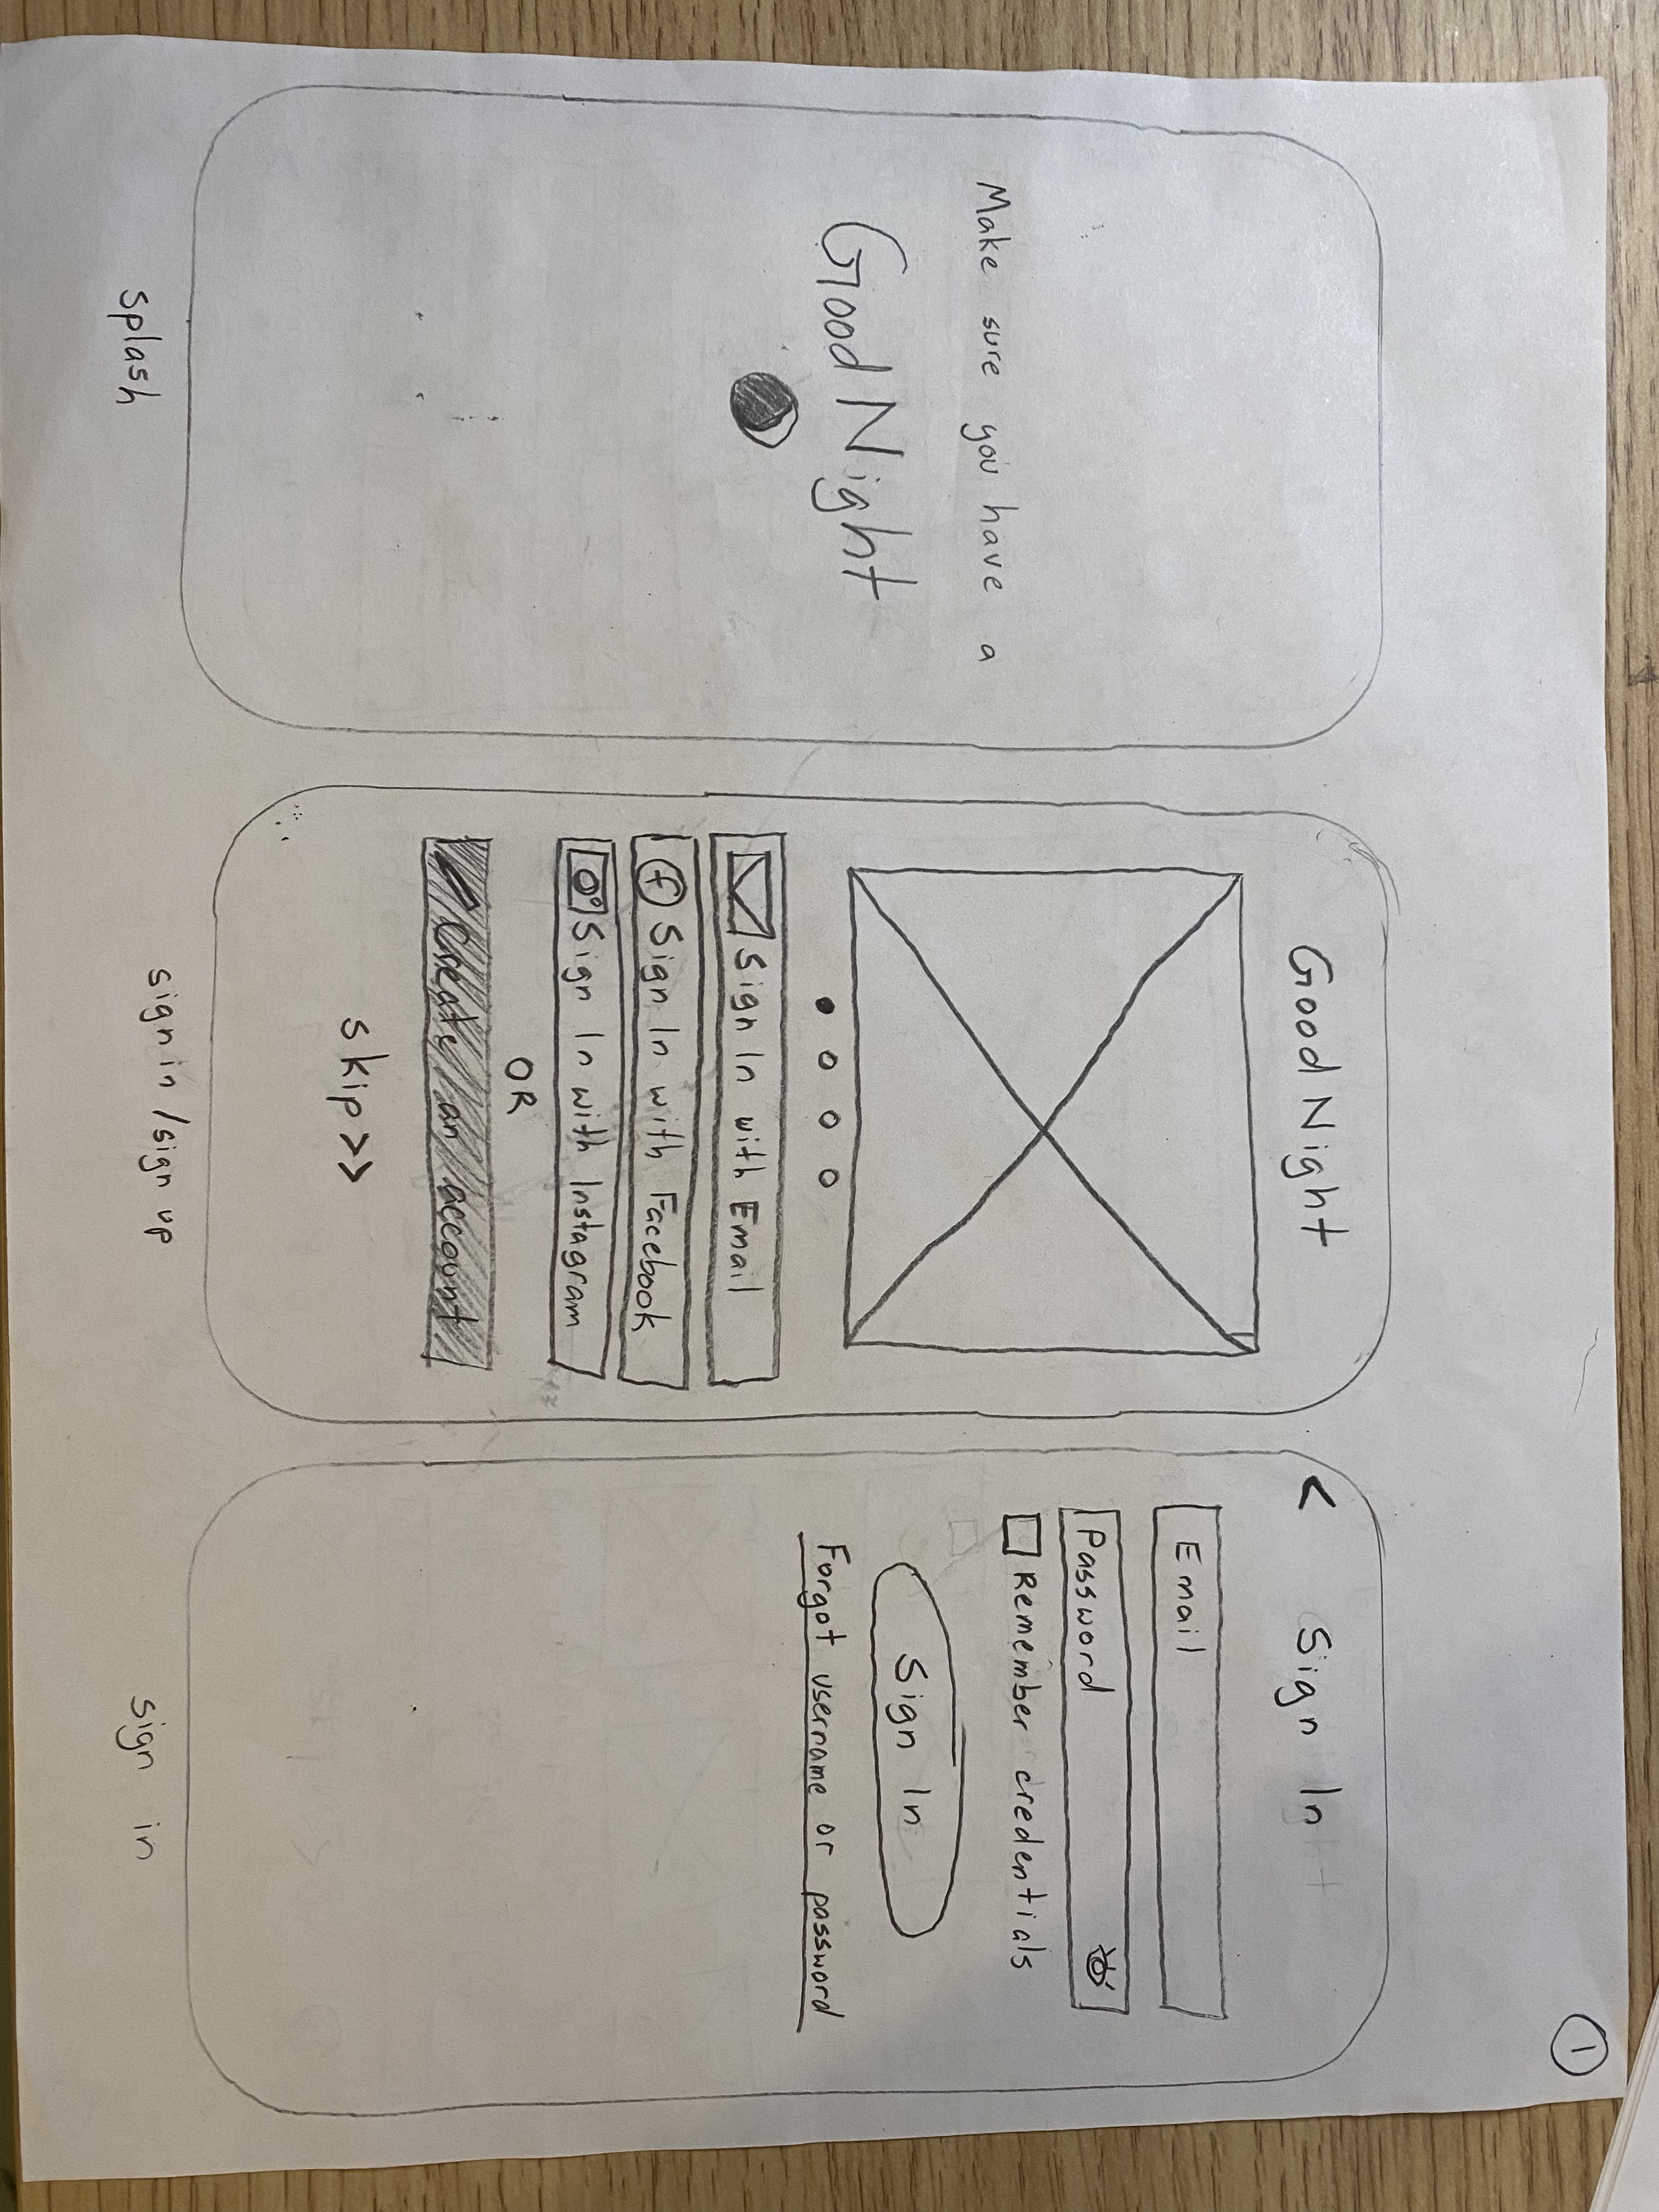 1
Make sure you have a
Good Night
splash
Good Night
Sign In with Email
f Sign In with Facebook
Sign In with Instagram
OR
Create an account
skip >>
sign in / sign up
< Sign In
Email
Password
Remember credentials
Sign In
Forgot username or password
sign in